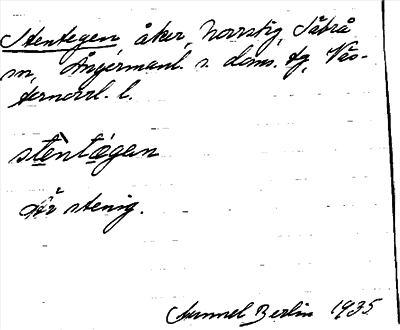 Stentegen, åker, Norrstig, Säbrå
sn, Ångermanl. s. doms. tg, Väs-
ternorrl. l.
stèntǝgan
Är stenig.
Gunnel Berlin 1935